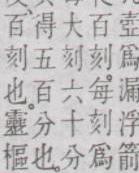 壺爲漏浮箭
百刻每刻爲
大刻六十分
得五百分也
百刻也靈樞